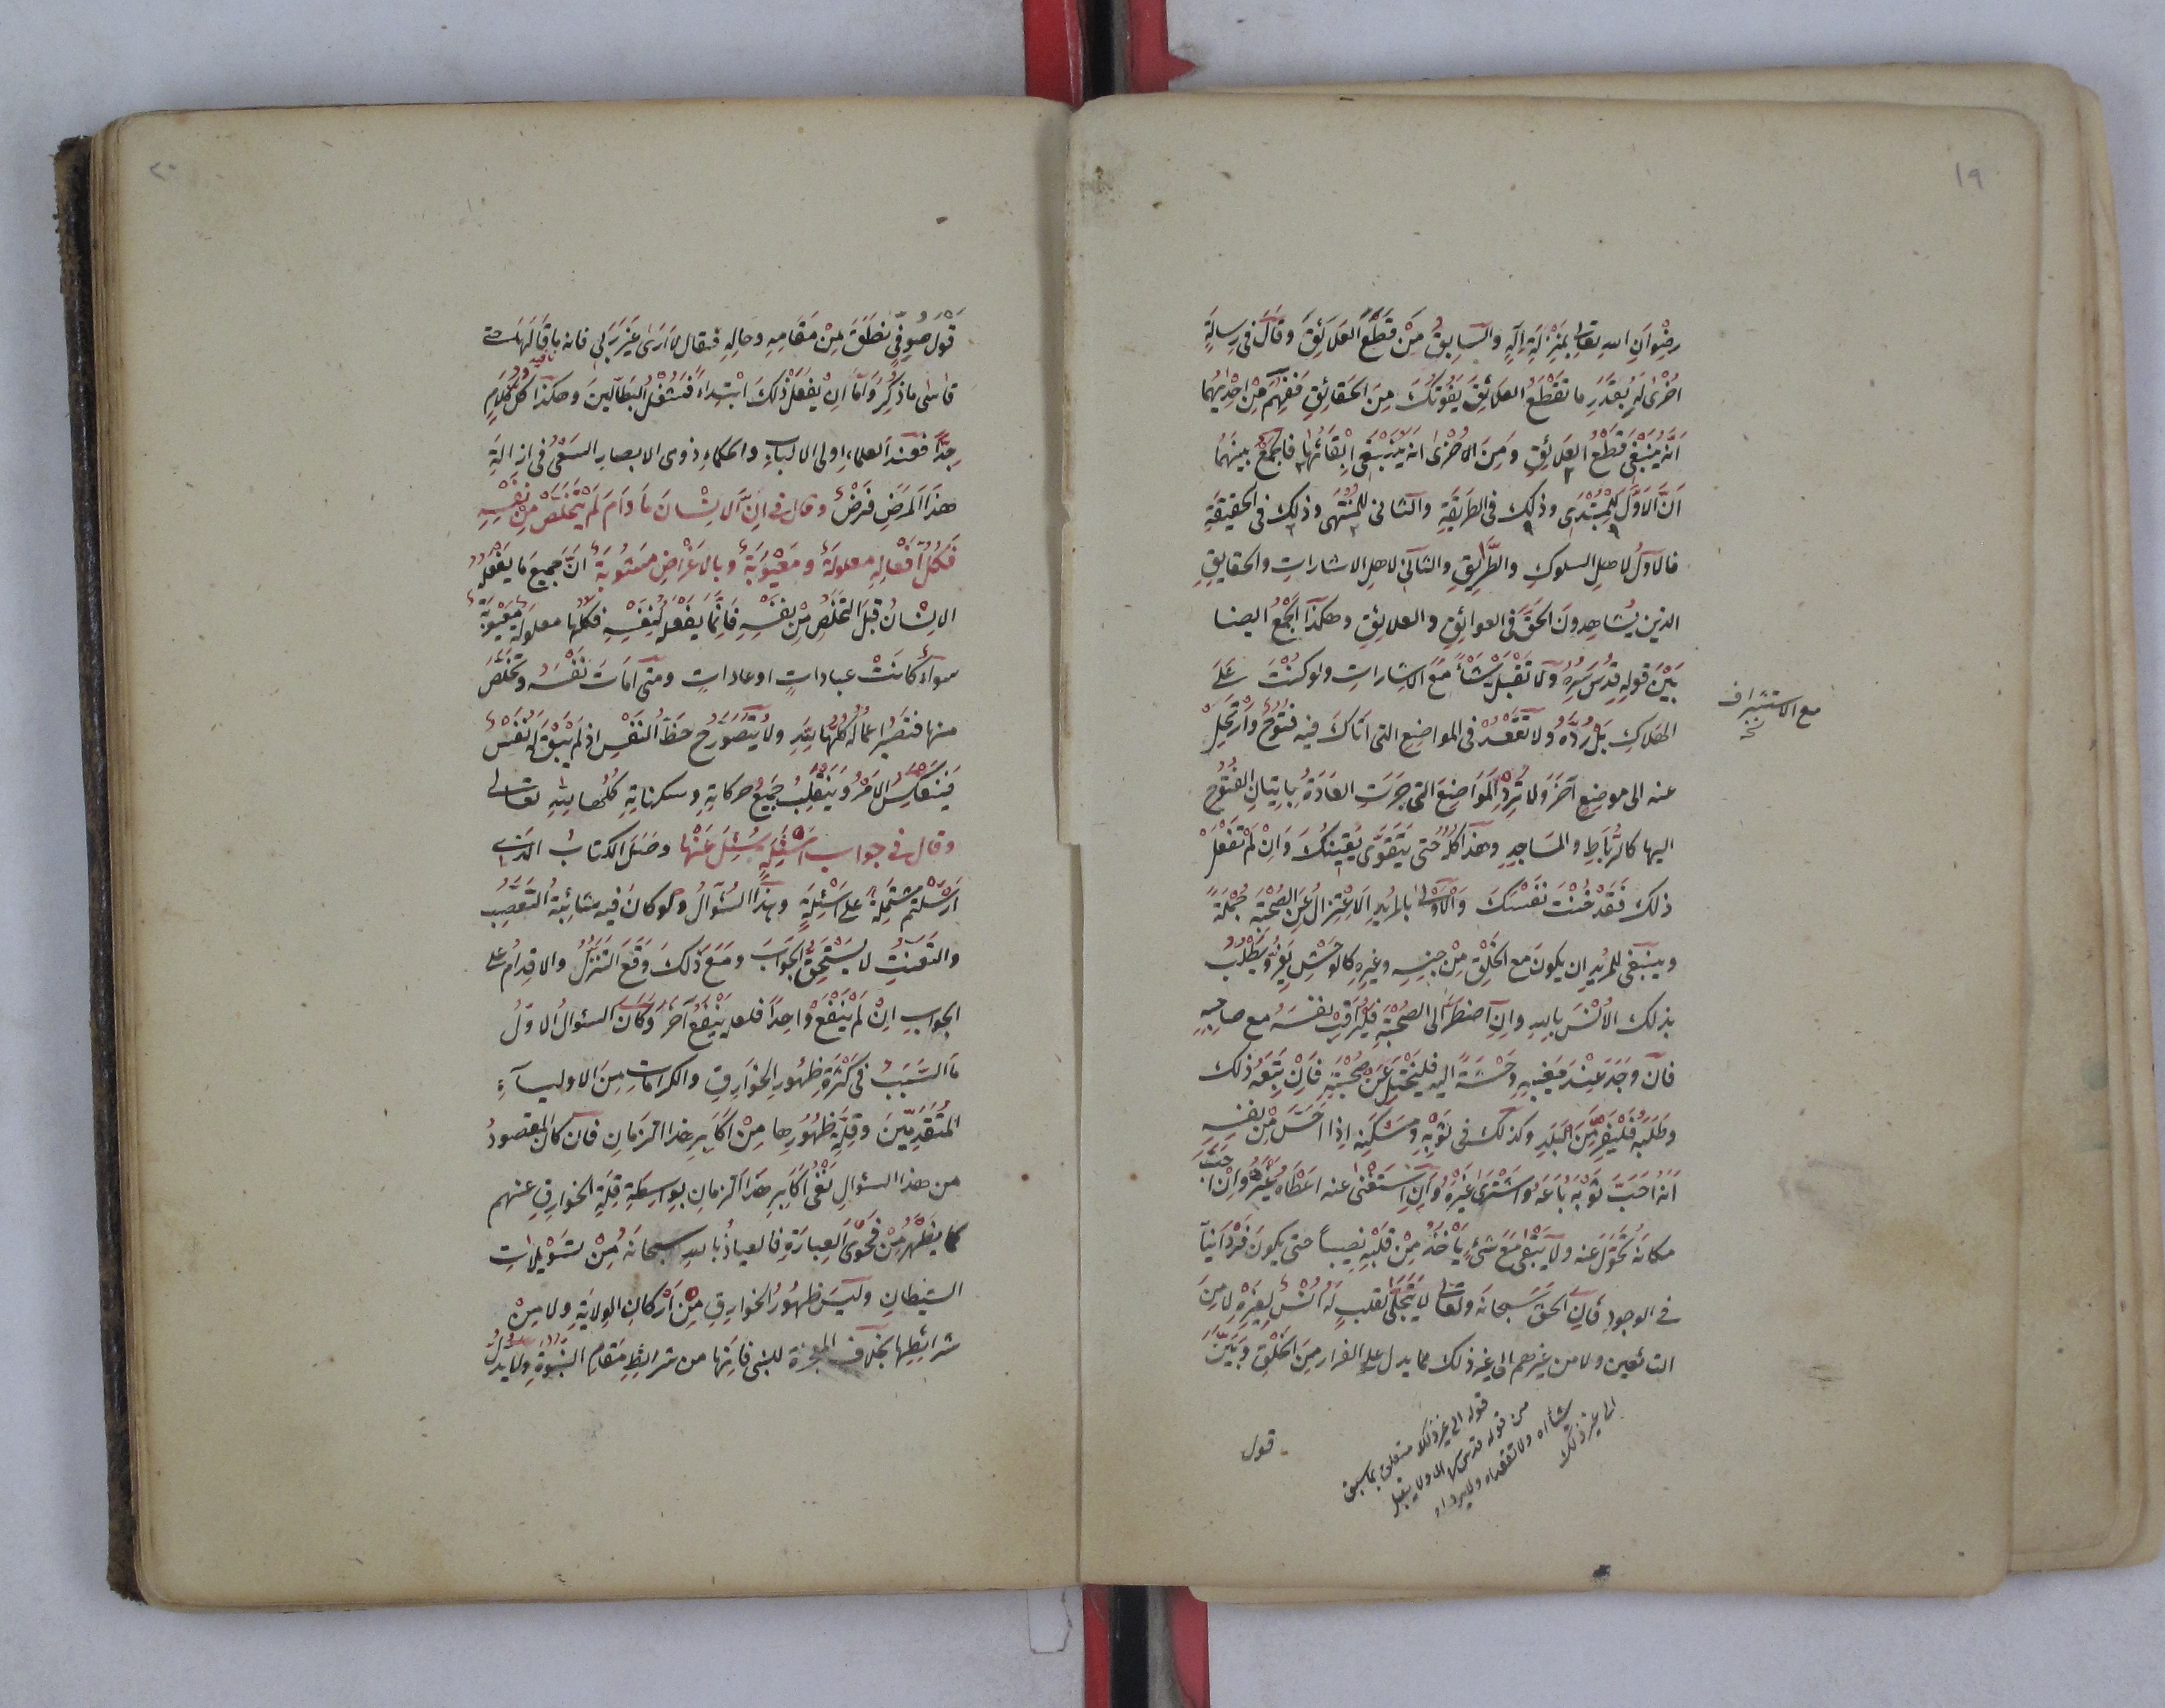 ١٩
رضوان الله تعالى بمنزلة اله والسابق من قطع العلائق وقال في رسالة
اخرى له بقدر ما تقطع العلائق يفوتك من الحقائق ففهم من احديهما
انه ينبغي قطع العلائق ومن الاخرى انه ينبغي ابقائها فاجمع بينهما
ان الاول للمبتدى وذلك في الطريقة والثاني للمنتهى وذلك في الحقيقة
فالاول لاهل السلوك والطريق والثاني لاهل الاشارات والحقايق
الذين يشاهدون الحق في العوائق والعلائق وهكذا الجمع ايضا
بين قوله قدس سره ولا تقبل شئأ مع الاشارات ولو كنت على
مع الاستشراف نخه
الهلاك بل رده ولا تقعد في المواضع التي اتاك فيه فتوح وارتحل
عنه الى موضع آخر ولا ترد المواضع التي جرت العادة باتيان الفتوح
اليها كالرباط والمساجد وهذا كله حتى يتقوى يقينك وان لم تفعل
ذلك فقد خنت نفسك والاولى بالمريد الاعتزال عن الصحبة جملة
وينبغي للمريد ان يكون مع الخلق من جنسه وغيره كالوحش يفر ويطلب
بذلك الانس بالله وان اضطر الى الصحبة فليراقب نفسه مع صاحبه
فان وجد عند مغيبه وحشة اليه فليتحيل عن صحبته فان تبعه ذلك
وطلبه فليفر من البلد وكذلك في ثوبه ومسكنه اذا احس من نفسه
انه احب ثوبه باعه واشترى غيره وان استغنى عنه اعطاه غيره وان احب
مكانه تحول عنه ولا يبقى مع شئ يأخذ من قلبه نصيبا حتى يكون فردانيا
في الوجود فان الحق سبحانه وتعالى لا يتجلى لقلب له انس لغيره لا من
التائبين ولا من غيرهم الى غير ذلك مما يدل على الفرار من الخلق وبين
قوله الى غير ذلك متعلق بما سبق
من قوله قدس سره ولا يقبل
شئا اه ولا تقعد اه ولا يرد اه
الى غير ذلك
قول
٢٠
قول صوفي نطق من مقامه وحاله فقال لا ارى غير ربي فانه باق لهات حتى
قاسى ما ذكر واما ان يفعل ذلك ابتداء فشغل البطالين وهكذا كل كلام
جدا فعند العلماء اولى الالباب والحكماء ذوى الابصار السعي في ازالة
هذا المرض فرض وقال في ان الانسان ما دام لم يتخلص من نفسه
فكل افعاله معلولة ومعيوبة وبالاغراض مشوبة ان جميع ما يفعله
الانسان قبل التخلص من نفسه فانما يفعل لنفسه فكلها معلولة معيوبة
سواء كانت عبادات او عادات ومتى امات نفسه وتخلص
منها فتصير اعماله كلها لله ولا يتصور ح حظ النفس اذ لم يبق له نفس
فينعكس الامر وينقلب جميع حركاته وسكناته كلها لله تعالى
وقال في جواب اسئلة سئل عنها وصل الكتاب الذي
ارسلتم مشتملة على اسئلة وهذا السؤال ولو كان فيه شائبة التعصب
والتعنت لا يستحق الجواب ومع ذلك وقع التنزل والاقدام على
الجواب ان لم ينفع واحدا فلعله ينفع آخر وكان السؤال الاول
ما السبب في كثرة ظهور الخوارق والكرامات من الاولياء
المتقدمين وقلة ظهورها من اكابر هذا الزمان فان كان المقصود
من هذا السؤال نفى اكابر هذا الزمان بواسطة قلة الخوارق عنهم
كما يظهر من فحوى العبارة فالعياذ بالله سبحانه من تسويلات
الشيطان وليس ظهور الخوارق من اركان الولاية ولا من
شرائطها بخلاف المعجزة للنبي فانها من شرائط مقام النبوة ولا يدل